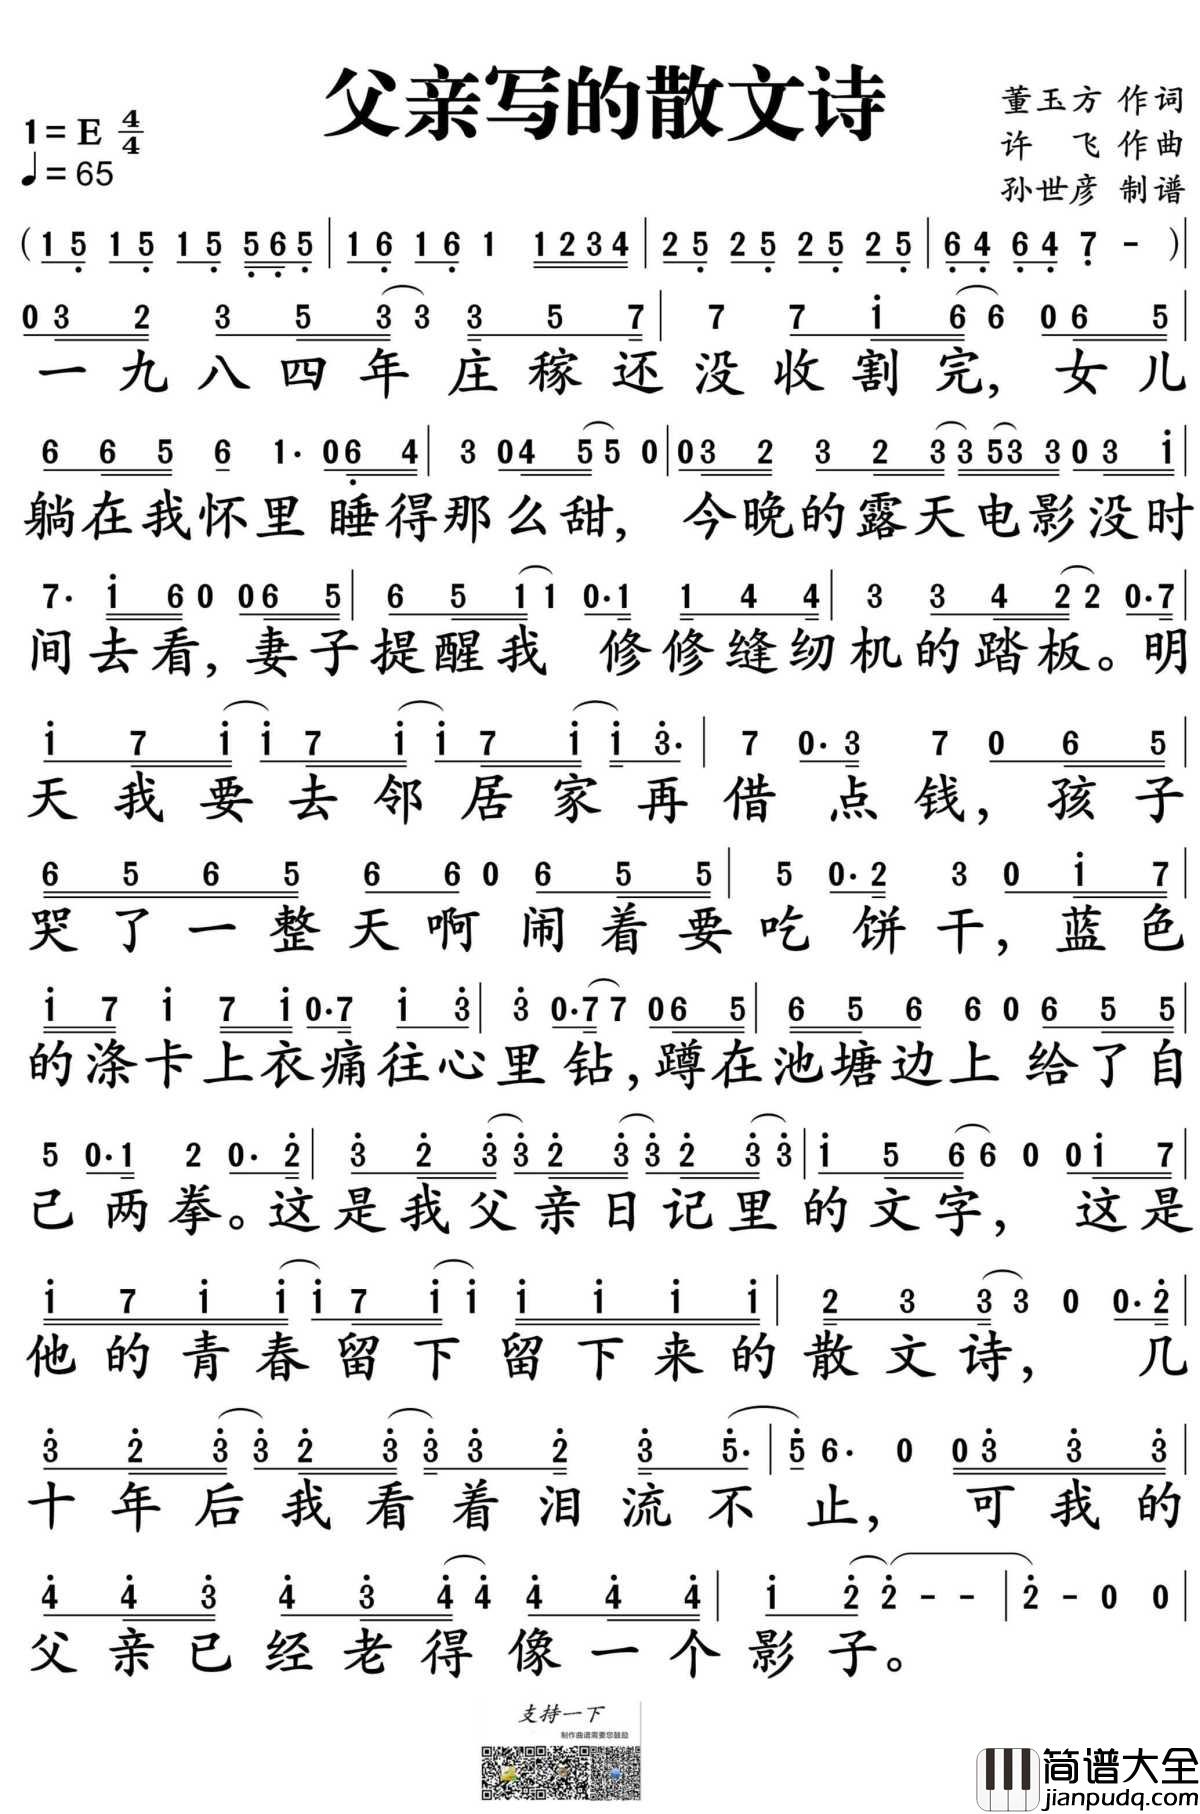 父亲写的散文诗
1=E 4/4
♩=65
董玉方 作词
许 飞 作曲
孙世彦 制谱
(1 5 1 5 1 5 5 6 5 | 1 6 1 6 1 1 2 3 4 | 2 5 2 5 2 5 2 5 | 6 4 6 4 7 - )|
0 3 2 3 5 3 3 3 5 7 | 7 7 i 6 6 0 6 5 |
一九八四年庄稼还没收割完,女儿
6 6 5 6 1· 0 6 4 | 3 0 4 5 5 0 | 0 3 2 3 2 3 3 5 3 3 0 3 i |
躺在我怀里睡得那么甜, 今晚的露天电影没时
7· i 6 0 0 6 5 | 6 5 1 1 0·1 1 4 4 | 3 3 4 2 2 0·7 |
间去看,妻子提醒我 修修缝纫机的踏板。明
i 7 i i 7 i i 7 i i 3· | 7 0·3 7 0 6 5 |
天我要去邻居家再借点钱,孩子
6 5 6 5 6 6 0 6 5 5 | 5 0·2 3 0 i 7 |
哭了一整天啊闹着要吃饼干,蓝色
i 7 i 7 i 0·7 i 3 | 3 0·7 7 0 6 5 | 6 5 6 6 0 6 5 5 |
的涤卡上衣痛往心里钻,蹲在池塘边上给了自
5 0·1 2 0· 2 | 3 2 3 3 2 3 3 2 3 3 | i 5 6 6 0 0 i 7 |
己两拳。这是我父亲日记里的文字, 这是
i 7 i i i 7 i i i i i i | 2 3 3 3 0 0·2 |
他的青春留下留下来的散文诗, 几
3 2 3 3 2 3 3 3 2 3 5· | 5 6· 0 0 3 3 3 |
十年后我看着泪流不止, 可我的
4 4 3 4 3 4 4 4 4 4 | i 2 2 - - | 2 - 0 0 |
父亲已经老得像一个影子。
支持一下
制作曲谱需要您鼓励
简谱大全
jianpudq.com